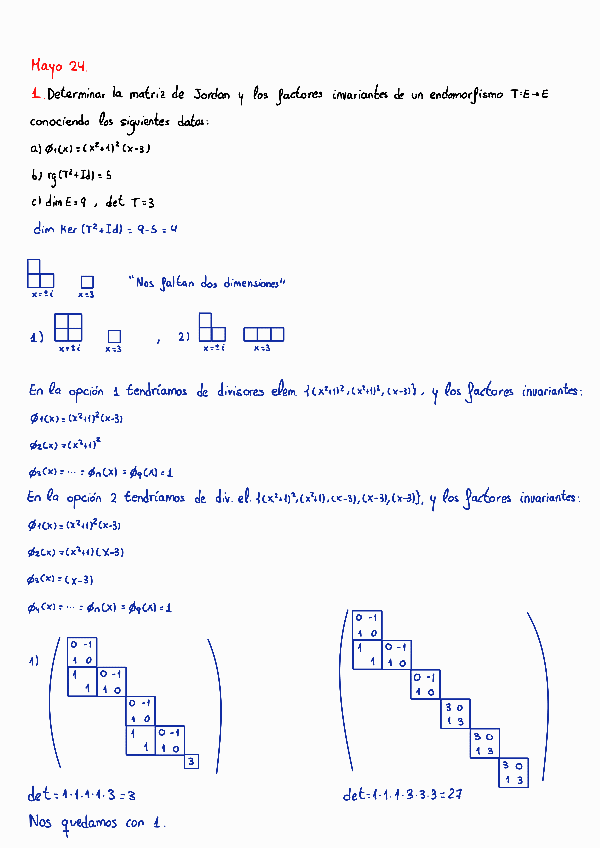 Mayo 24.
1. Determinar la matriz de Jordan y los factores invariantes de un endomorfismo T:E→E
conociendo los siguientes datos:
a) ϕ1(x)=(x²+1)²(x-3)
b) rg(T²+Id)=5
c) dim E=9, det T=3
dim Ker(T²+Id) = 9-5 = 4
x=±i x=3 "Nos faltan dos dimensiones"
1) x=±i x=3 , 2) x=±i x=3
En la opción 1 tendríamos de divisores elem. {(x²+1)²,(x²+1)²,(x-3)}, y los factores invariantes:
ϕ1(x)=(x²+1)²(x-3)
ϕ2(x)=(x²+1)²
ϕ3(x)=...=ϕn(x)=ϕ9(x)=1
En la opción 2 tendríamos de div. el. {(x²+1)²,(x²+1),(x-3),(x-3),(x-3)}, y los factores invariantes:
ϕ1(x)=(x²+1)²(x-3)
ϕ2(x)=(x²+1)(x-3)
ϕ3(x)=(x-3)
ϕ4(x)=...=ϕn(x)=ϕ9(x)=1
1)
0 -1
1 0
1 0 -1
1 1 0
0 -1
1 0
1 0 -1
1 1 0
3
0 -1
1 0
1 0 -1
1 1 0
0 -1
1 0
3 0
1 3
3 0
1 3
3 0
1 3
det=1·1·1·1·3=3
det=1·1·1·3·3·3=27
Nos quedamos con 1.